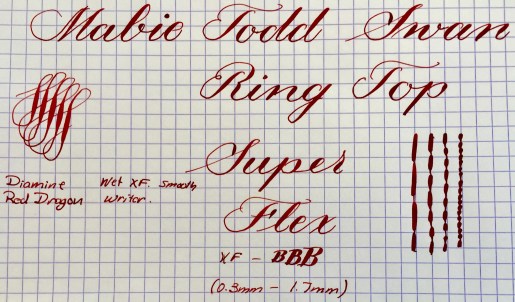 Mabie Todd Swan
Ring Top
Super
Flex
XF - BBB
(0.3mm - 1.7mm)
Diamine
Red Dragon
Wet XF. Smooth
writer.